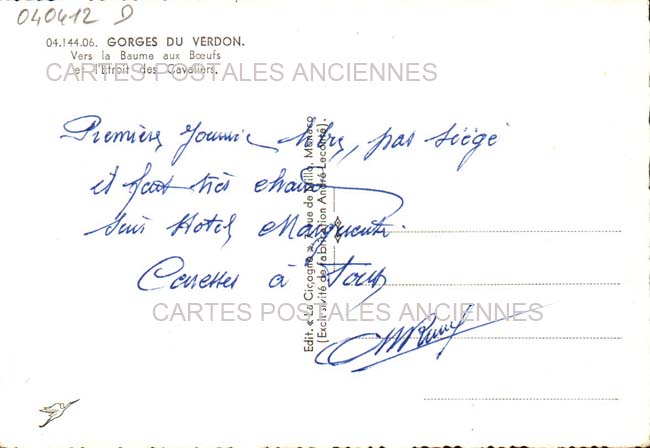 040412 D
04.144.06. GORGES DU VERDON.
Vers la Baume aux Bœufs
et l'Etroit des Cavaliers.
CARTES POSTALES ANCIENNES
Première journée libre, pas siégé
et fait très chaud
suis Hotel Marguerite.
Caresses à Tous
CARTES POSTALES ANCIENNES
Edit. « La Cigogne », rue de Millo, Monaco
(Exclusivité de fabrication André Leconte).